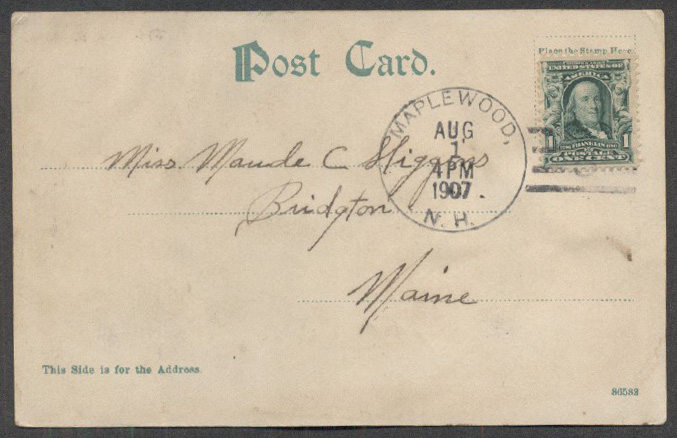 Post Card.
Place the Stamp Here
UNITED STATES OF
AMERICA
1 1
FRANKLIN
POSTAGE
ONE CENT
MAPLEWOOD,
AUG
1
4PM
1907
N.H.
Miss. Maude C Higgins
Bridgton
Maine
This Side is for the Address.
86582